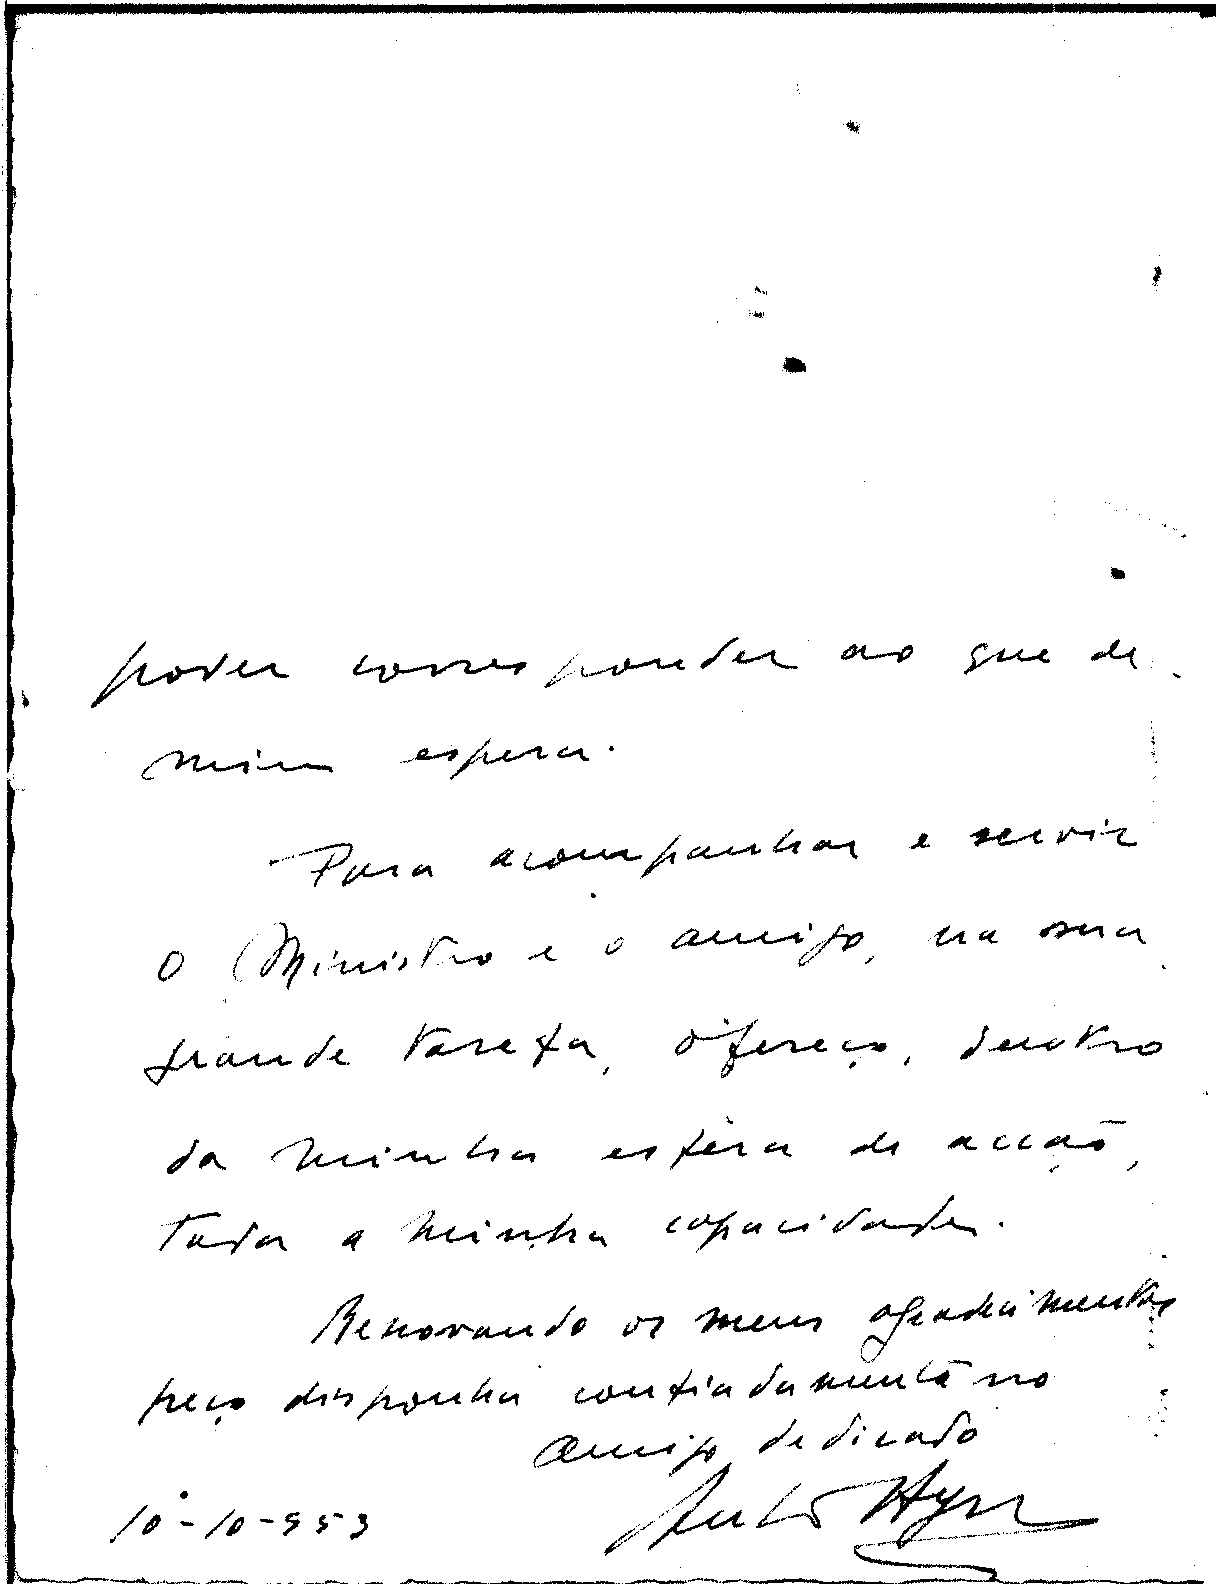 poder corresponder ao que de
mim espera.
Para acompanhar e servir
o Ministro e o amigo, na sua
grande tarefa, ofereço, dentro
da minha esfera de acção,
toda a minha capacidade.
Renovando os meus agradecimentos
peço disponha confiadamente no
amigo dedicado
10-10-953